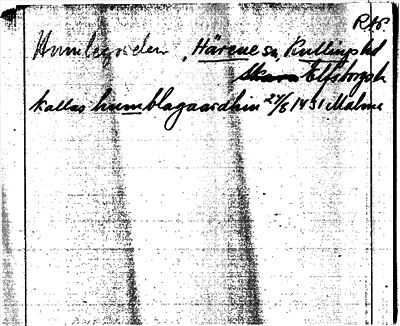 Humlegården, Härene sn, Kullings hd
Skara Elfsborgs l.
kallas humblagaardhin 24/6 1431 Malme